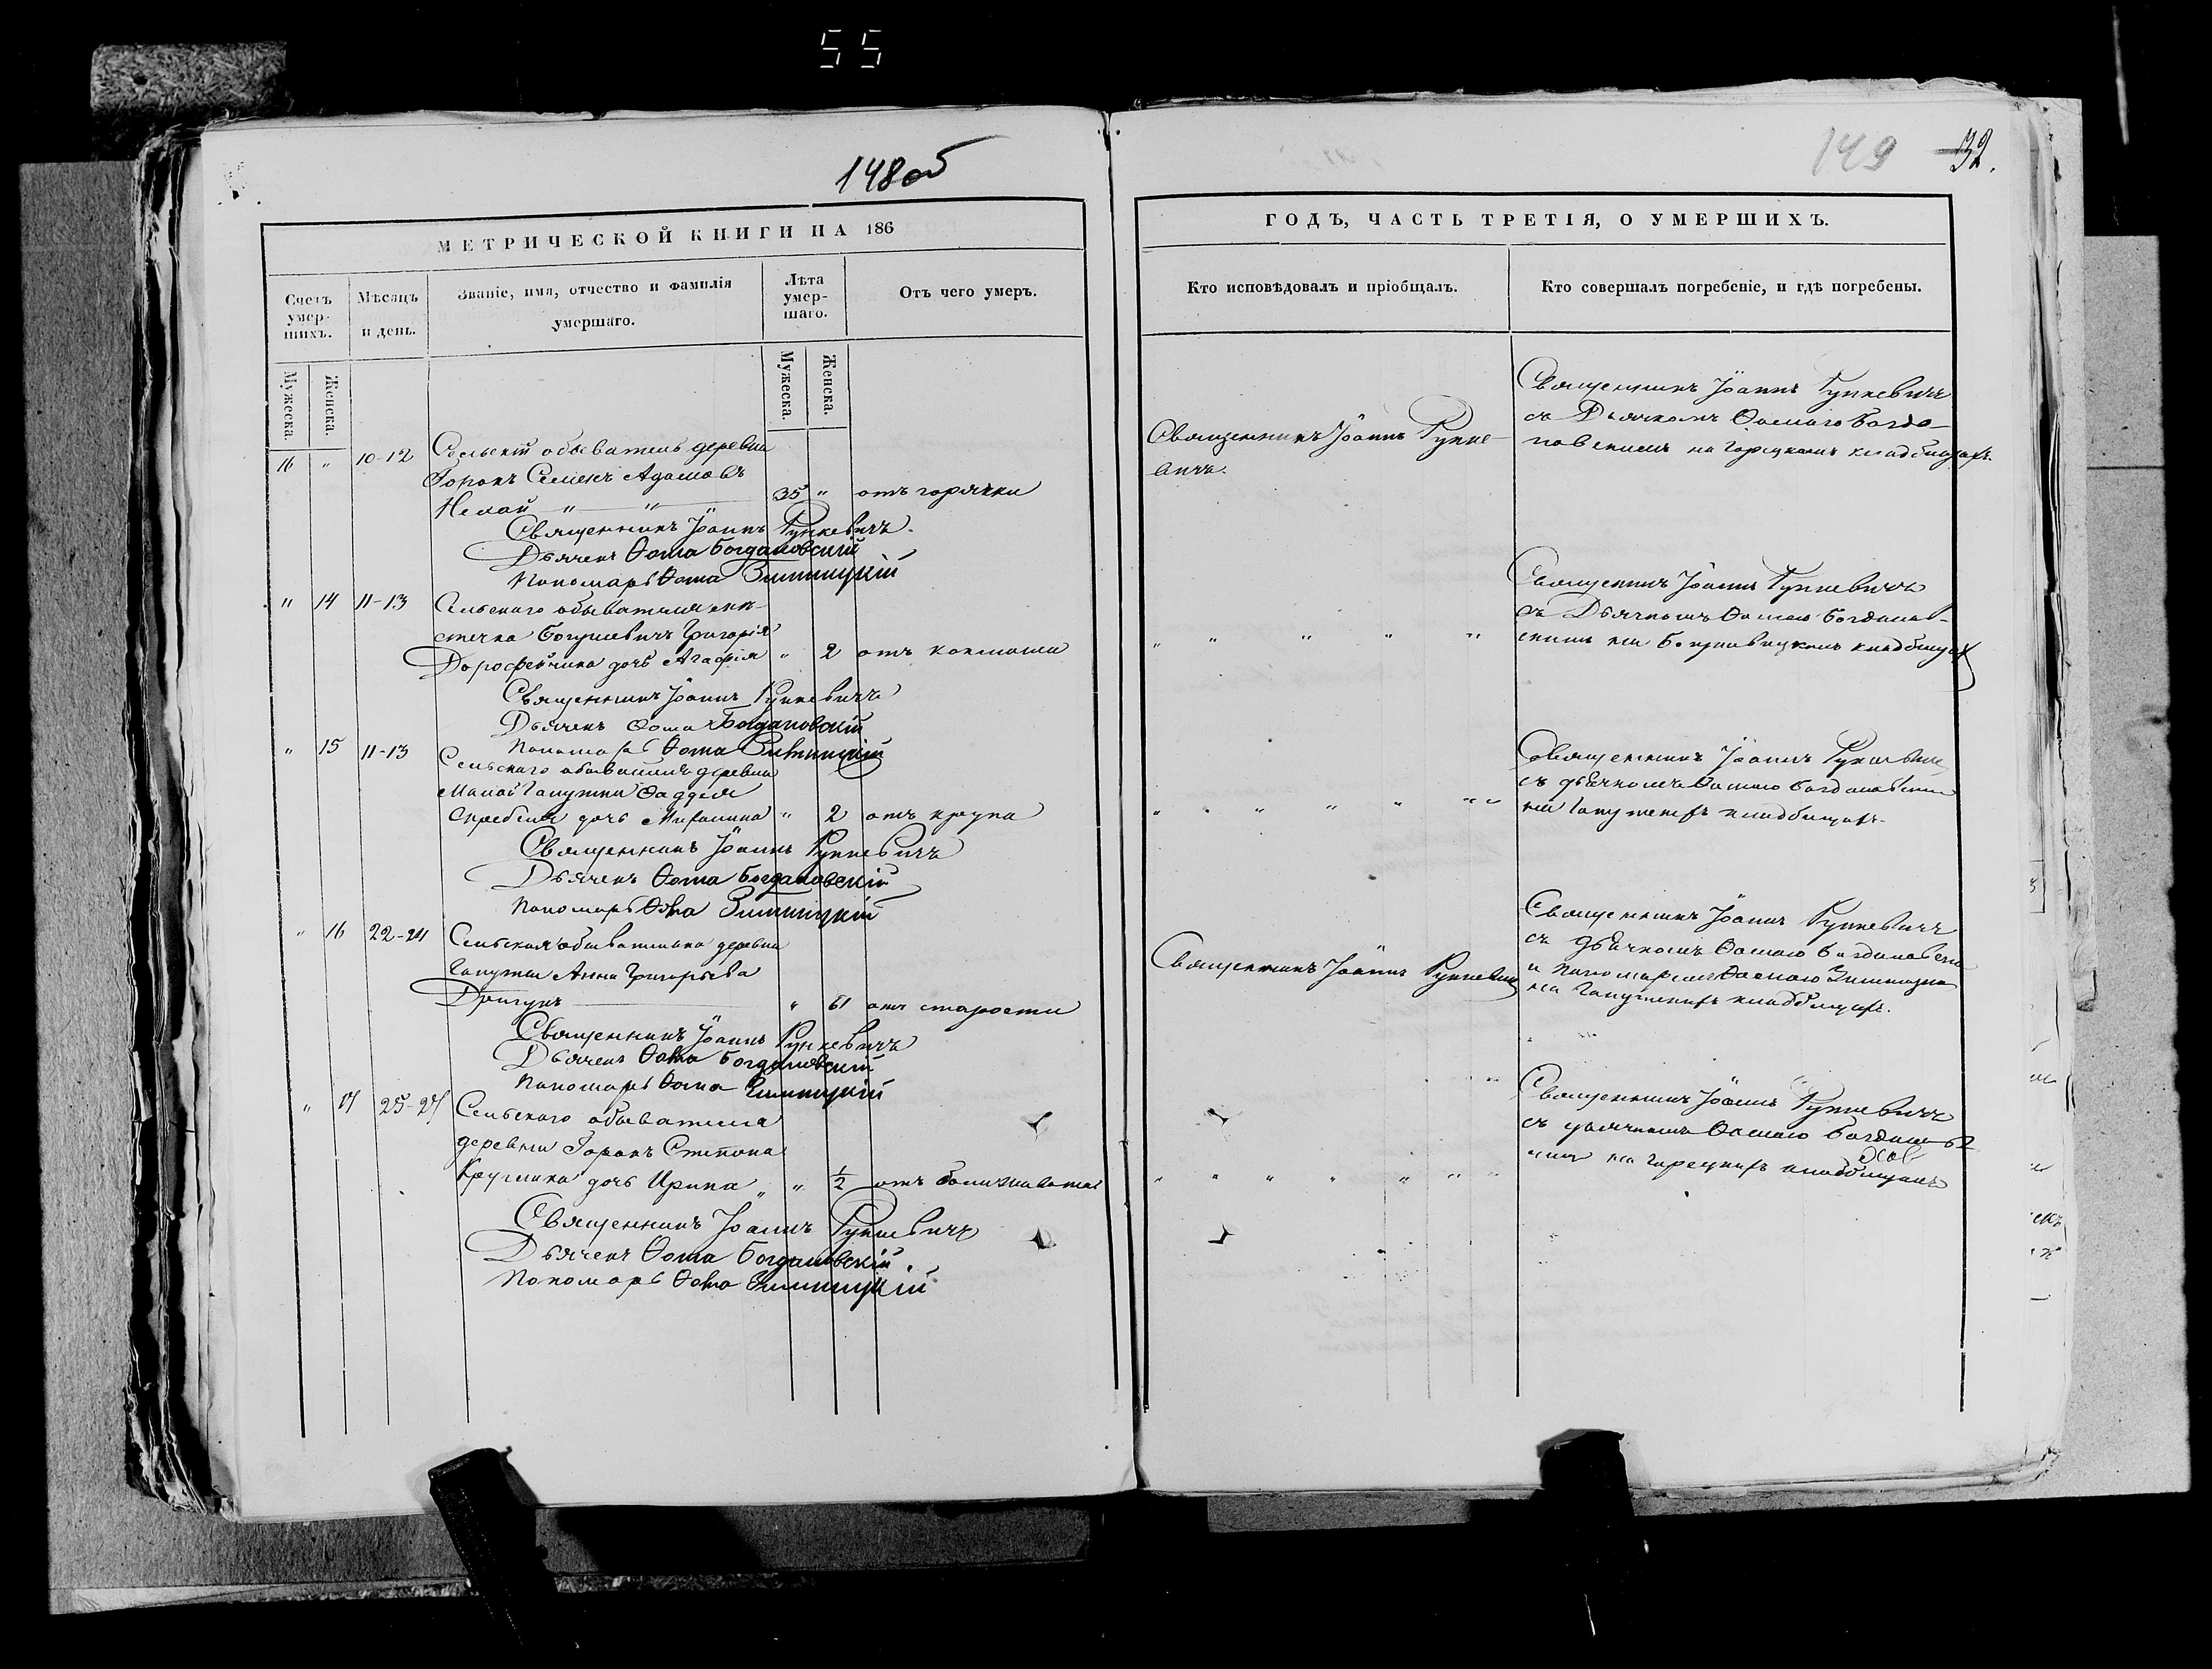 55
148 об
149 32.
МЕТРИЧЕСКОЙ КНИГИ НА 186
Счетъ умер-шихъ.
Мѣсяцъ и день.
Званіе, имя, отчество и фамилія умершаго.
Лѣта умер-шаго.
Отъ чего умеръ.
Мужеска.
Женска.
Мужеска.
Женска.
16 " 10-12 Сельскій обыватель деревни
Горокъ Семенъ Адамовъ
Немой " " 35 " отъ горячки
Священникъ Іоаннъ Рункевичъ.
Дьячекъ Ѳома Богдановскій
Пономарь Ѳома Зимницкій
" 14 11-13 Сельскаго обывателя мѣ-
стечка Богушевичъ Григорія
Дорофейчика дочь Агафія " 2 отъ коклюша
Священникъ Іоаннъ Рункевичъ
Дьячекъ Ѳома Богдановскій
Пономарь Ѳома Зимницкій
" 15 11-13 Сельскаго обывателя деревни
Малой Гапутки Ѳаддея
дочь " 2 отъ крупа
Священникъ Іоаннъ Рункевичъ
Дьячекъ Ѳома Богдановскій
Пономарь Ѳома Зимницкій
" 16 22-24 Сельская обывателька деревни
Анна Григорьева
" 61 отъ старости
Священникъ Іоаннъ Рункевичъ
Дьячекъ Ѳома Богдановскій
Пономарь Ѳома Зимницкій
" 17 25-27 Сельскаго обывателя
деревни Горокъ Степана
дочь Ирина " " 1/2 отъ
Священникъ Іоаннъ Рункевичъ
Дьячекъ Ѳома Богдановскій
Пономарь Ѳома Зимницкій
ГОДЪ, ЧАСТЬ ТРЕТІЯ, О УМЕРШИХЪ.
Кто исповѣдовалъ и пріобщалъ.
Кто совершалъ погребеніе, и гдѣ погребены.
Священникъ Іоаннъ Рунке-
вичъ.
Священникъ Іоаннъ Рункевичъ
съ Дьячкомъ Ѳомою Богда-
новскимъ на Горецкомъ кладбищахъ.
" " " " "
Священникъ Іоаннъ Рункевичъ
съ Дьячкомъ Ѳомою Богданов-
скимъ на кладбищахъ
" " " " " " "
Священникъ Іоаннъ Рункевичъ
съ дьячкомъ Ѳомою Богдановским
на кладбищахъ.
Священникъ Іоаннъ Рункевичъ
Священникъ Іоаннъ Рункевичъ
съ дьячкомъ Ѳомою Богдановски
и пономаремъ Ѳомою
на кладбищахъ.
" " " " " " "
Священникъ Іоаннъ Рункевичъ
съ дьячкомъ Ѳомою
на Горецкихъ кладбищахъ